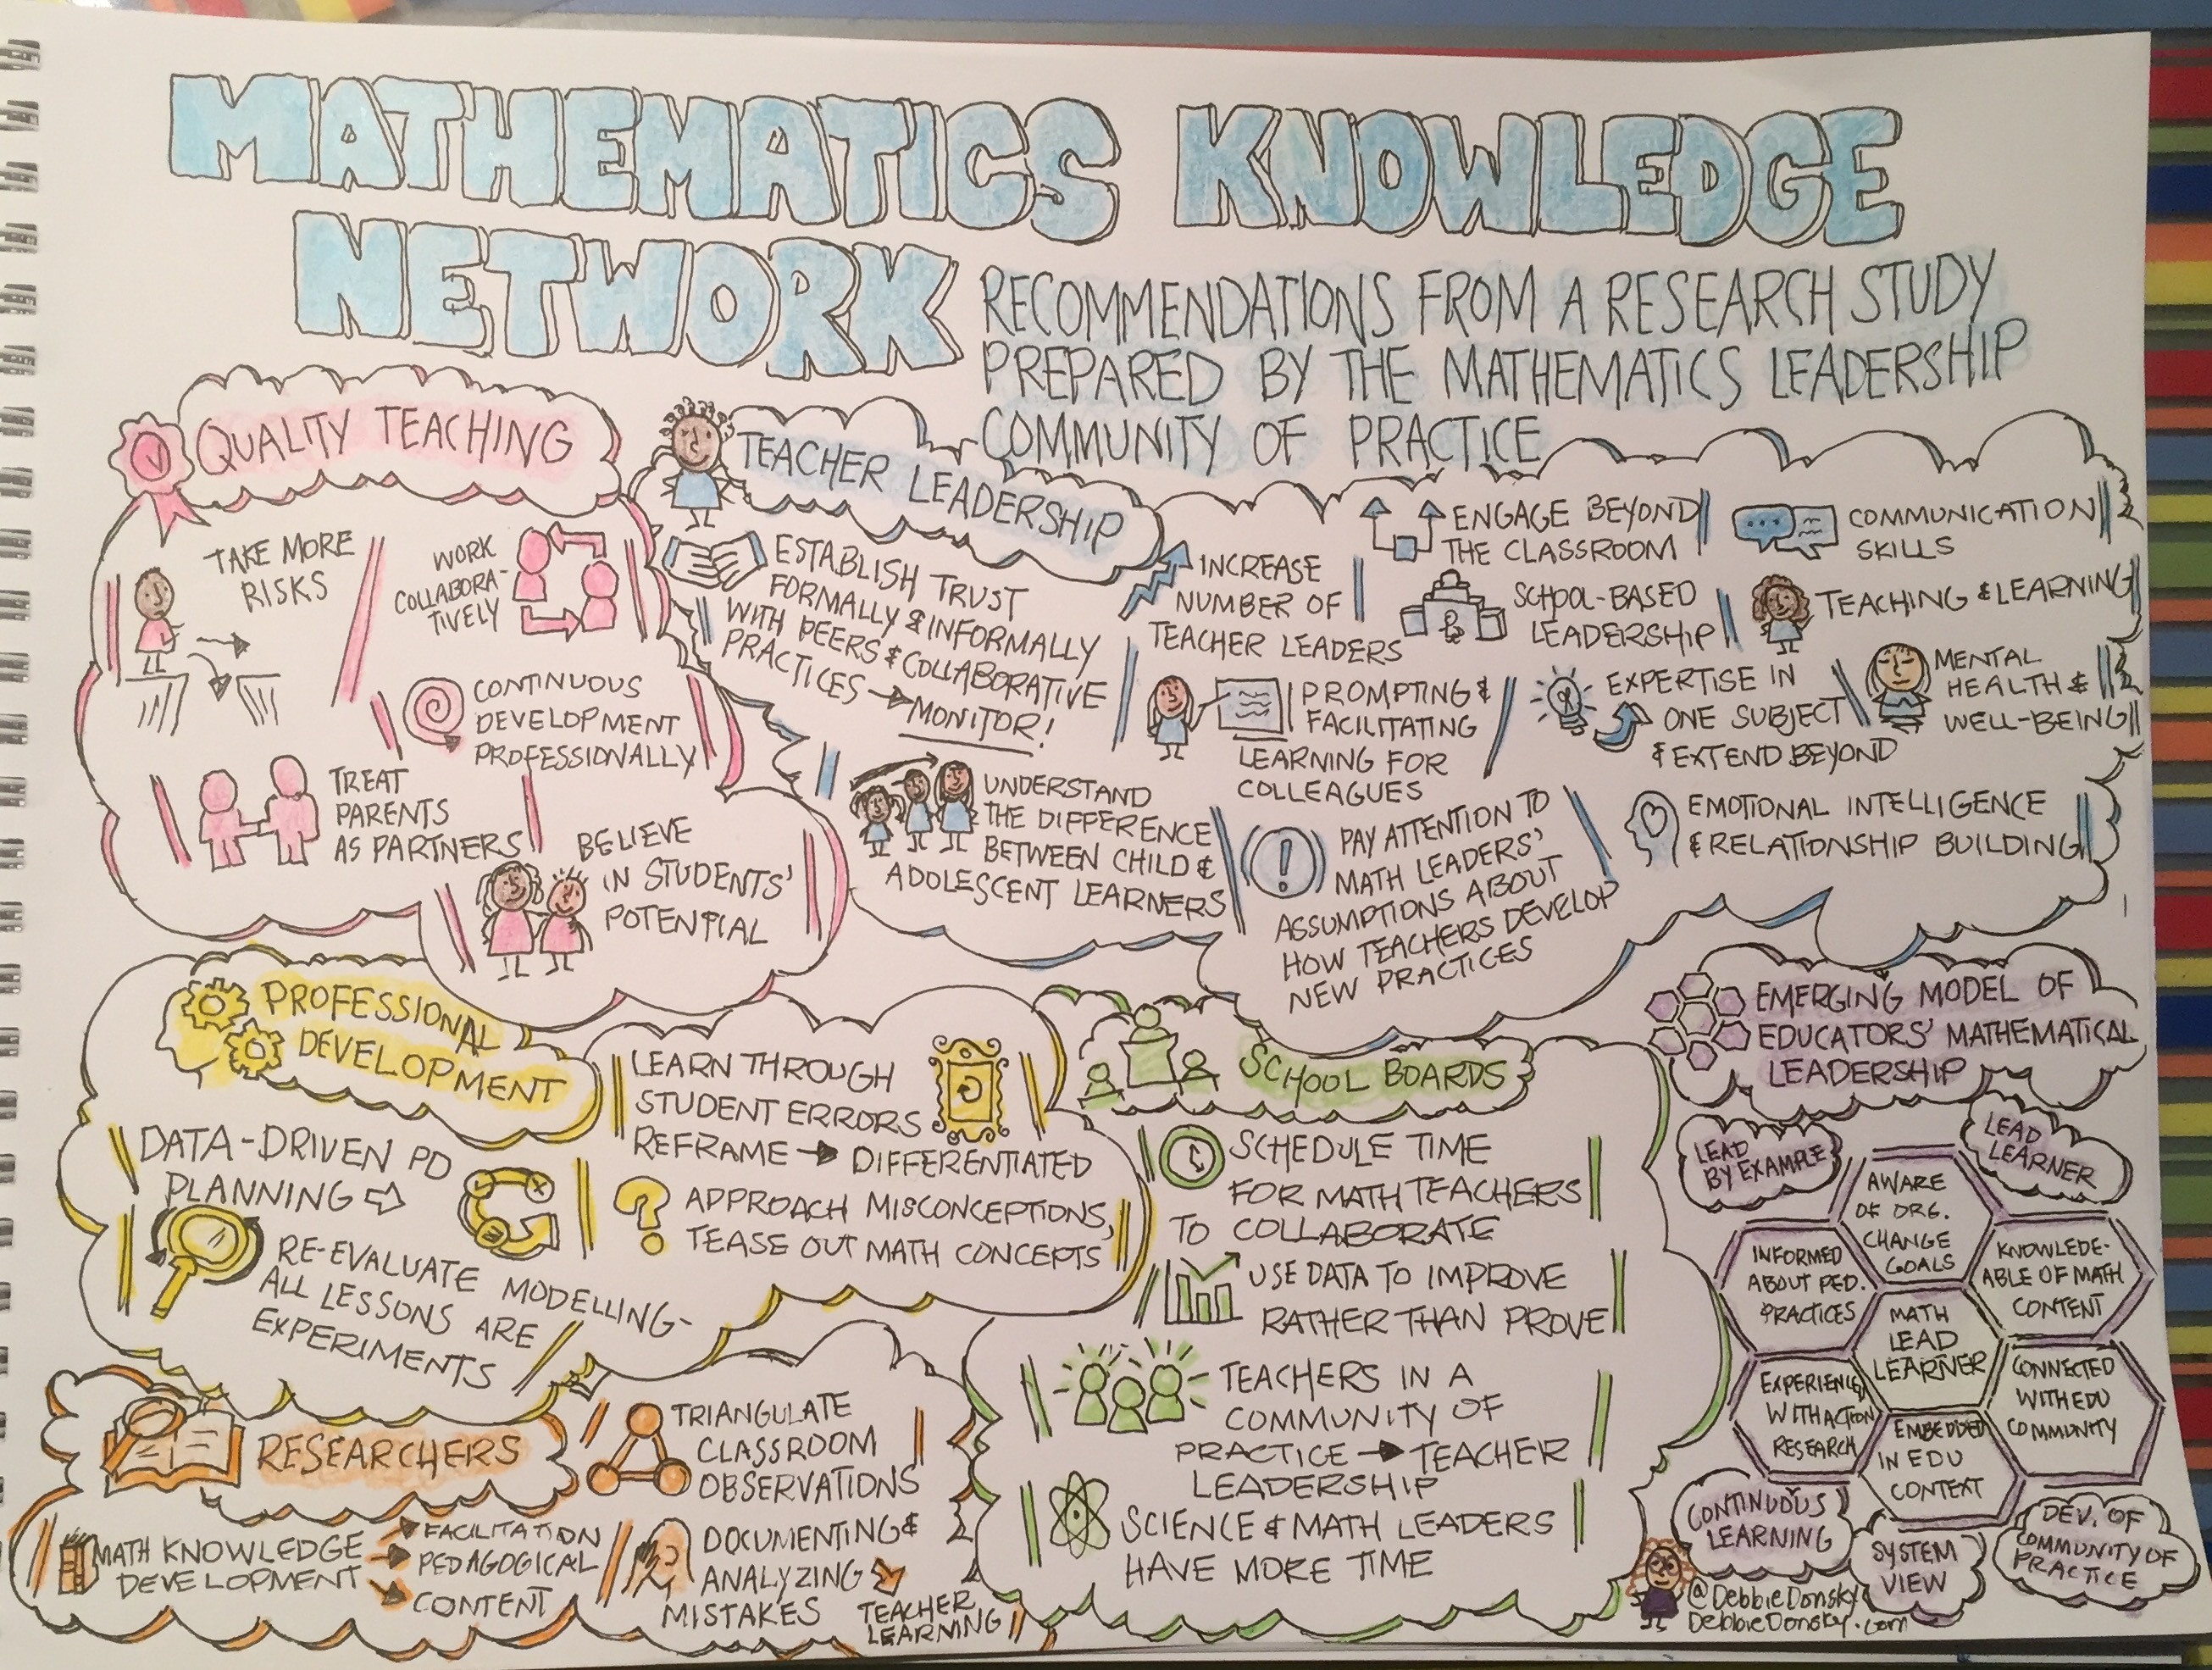 MATHEMATICS KNOWLEDGE
NETWORK
RECOMMENDATIONS FROM A RESEARCH STUDY
PREPARED BY THE MATHEMATICS LEADERSHIP
COMMUNITY OF PRACTICE
QUALITY TEACHING
TAKE MORE
RISKS
WORK
COLLABORA-
TIVELY
CONTINUOUS
DEVELOPMENT
PROFESSIONALLY
TREAT
PARENTS
AS PARTNERS
BELIEVE
IN STUDENTS'
POTENTIAL
TEACHER LEADERSHIP
ESTABLISH TRUST
FORMALLY & INFORMALLY
WITH PEERS & COLLABORATIVE
PRACTICES → MONITOR!
INCREASE
NUMBER OF
TEACHER LEADERS
ENGAGE BEYOND
THE CLASSROOM
COMMUNICATION
SKILLS
SCHOOL-BASED
LEADERSHIP
TEACHING & LEARNING
PROMPTING &
FACILITATING
LEARNING FOR
COLLEAGUES
EXPERTISE IN
ONE SUBJECT
& EXTEND BEYOND
MENTAL
HEALTH &
WELL-BEING
UNDERSTAND
THE DIFFERENCE
BETWEEN CHILD &
ADOLESCENT LEARNERS
PAY ATTENTION TO
MATH LEADERS'
ASSUMPTIONS ABOUT
HOW TEACHERS DEVELOP
NEW PRACTICES
EMOTIONAL INTELLIGENCE
& RELATIONSHIP BUILDING
PROFESSIONAL
DEVELOPMENT
DATA-DRIVEN PD
PLANNING ⇨
RE-EVALUATE MODELLING-
ALL LESSONS ARE
EXPERIMENTS
LEARN THROUGH
STUDENT ERRORS
REFRAME → DIFFERENTIATED
? APPROACH MISCONCEPTIONS,
TEASE OUT MATH CONCEPTS
SCHOOL BOARDS
SCHEDULE TIME
FOR MATH TEACHERS
TO COLLABORATE
USE DATA TO IMPROVE
RATHER THAN PROVE
TEACHERS IN A
COMMUNITY OF
PRACTICE → TEACHER
LEADERSHIP
SCIENCE & MATH LEADERS
HAVE MORE TIME
RESEARCHERS
TRIANGULATE
CLASSROOM
OBSERVATIONS
MATH KNOWLEDGE
DEVELOPMENT
→ FACILITATION
→ PEDAGOGICAL
→ CONTENT
DOCUMENTING &
ANALYZING
MISTAKES
TEACHER
LEARNING
EMERGING MODEL OF
EDUCATORS' MATHEMATICAL
LEADERSHIP
LEAD
BY EXAMPLE
LEAD
LEARNER
AWARE
OF ORG.
CHANGE
GOALS
INFORMED
ABOUT PED.
PRACTICES
KNOWLEDE-
ABLE OF MATH
CONTENT
MATH
LEAD
LEARNER
EXPERIENCE
WITH ACTION
RESEARCH
CONNECTED
WITH EDU
COMMUNITY
EMBEDDED
IN EDU
CONTEXT
CONTINUOUS
LEARNING
SYSTEM
VIEW
DEV. OF
COMMUNITY OF
PRACTICE
@DebbieDonsky
DebbieDonsky.com